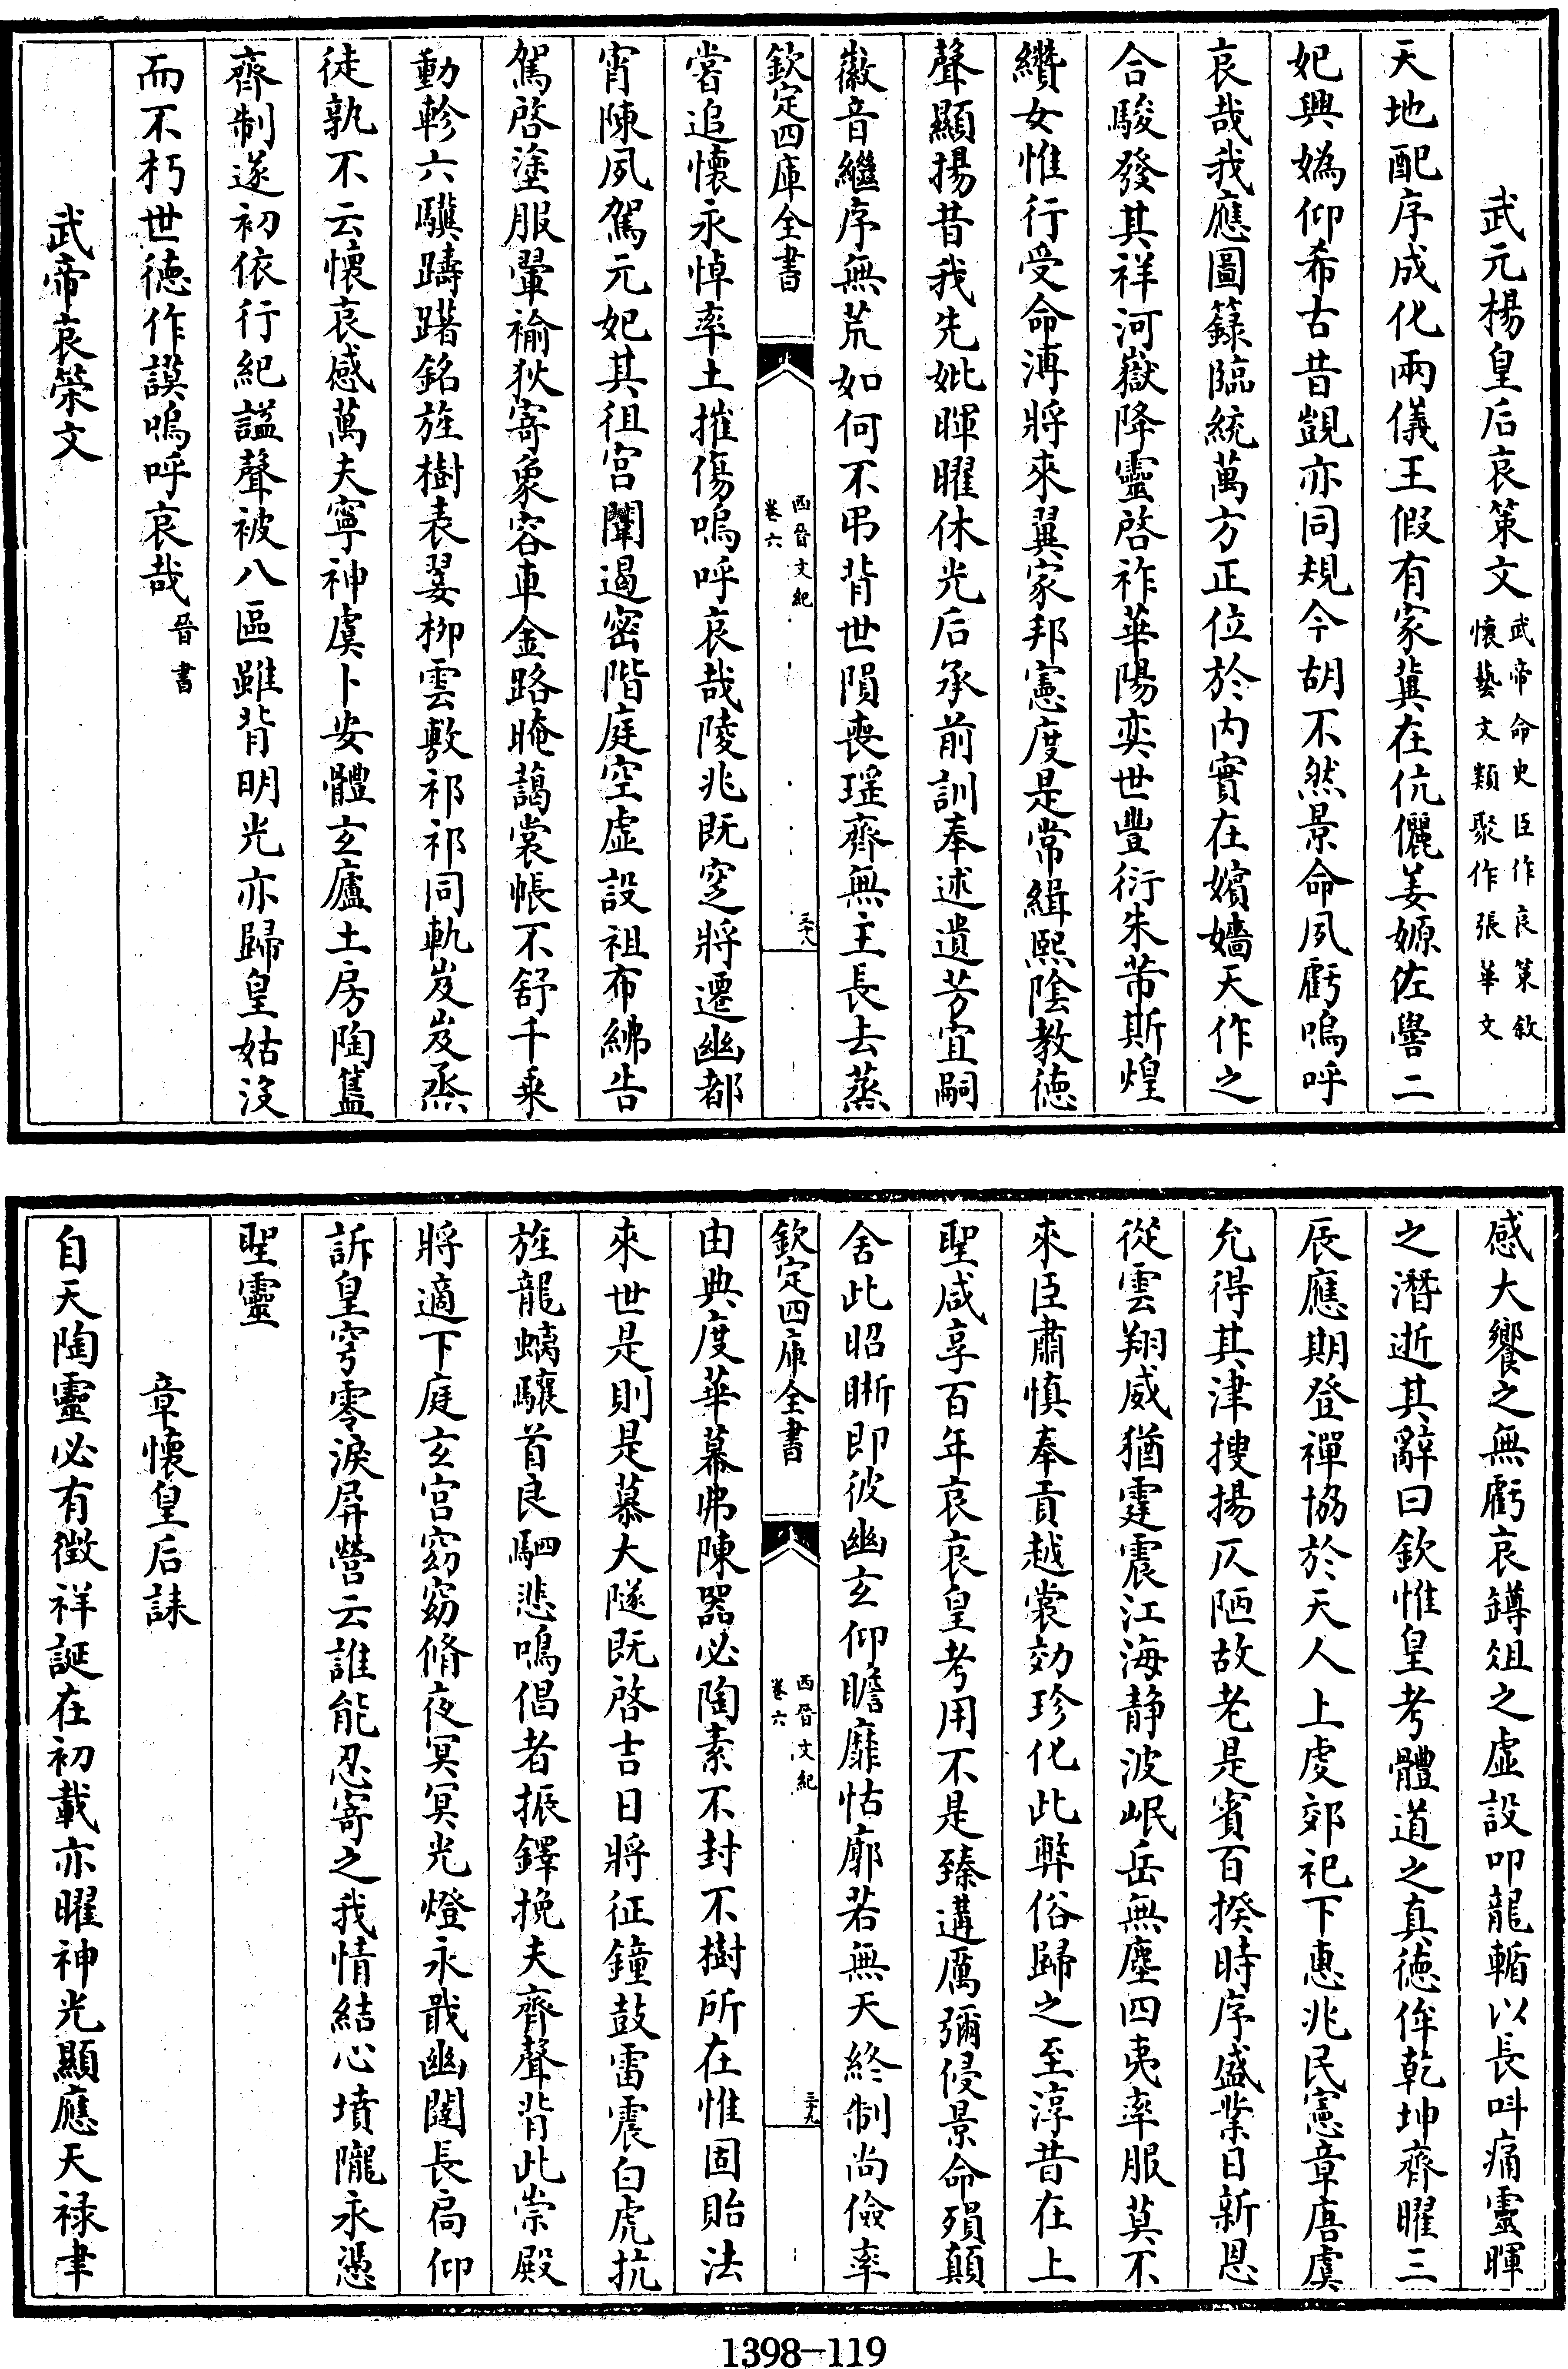 武元楊皇后哀策文武帝命史臣作哀策敘
懷藝文類聚作張華文
天地配序成化兩儀王假有家冀在伉儷姜嫄佐嚳二
妃興媯仰希古昔覬亦同規今胡不然景命夙虧嗚呼
哀哉我應圖籙臨統萬方正位於内實在嬪嬙天作之
合駿發其祥河嶽降靈啓祚華陽奕世豐衍朱芾斯煌
纘女惟行受命溥將來翼家邦憲度是常緝熙陰教德
聲顯揚昔我先妣暉曜休光后承前訓奉述遺芳宜嗣
徽音繼序無荒如何不弔背世隕喪瑶齊無主長去蒸
欽定四庫全書
西晉文紀
卷六
三十八
嘗追懷永悼率土摧傷嗚呼哀哉陵兆既穵將遷幽都
宵陳夙駕元妃其徂宮闈遏密階庭空虛設祖布紼告
駕啓塗服翬褕狄寄象容車金路晻藹裳帳不舒千乗
動軫六驥躊躇銘旌樹表翣栁雲敷祁祁同軌岌岌烝
徒孰不云懷哀感萬夫寧神虞卜安體玄廬土房陶簋
齊制遂初依行紀諡聲被八區雖背明光亦歸皇姑沒
而不朽世德作謨嗚呼哀哉晉書
武帝哀策文
感大饗之無虧哀鐏俎之虛設叩龍輴以長叫痛靈暉
之潛逝其辭曰欽惟皇考體道之真德侔乾坤齊曜三
辰應期登禪協於天人上虔郊祀下惠兆民憲章唐虞
允得其津搜揚仄陋故老是賓百揆時序盛業日新恩
從雲翔威猶霆震江海静波岷岳無塵四夷率服莫不
來臣肅慎奉貢越裳効珍化此弊俗歸之至淳昔在上
聖咸享百年哀哀皇考用不是臻遘厲彌侵景命殞顛
舍此昭晰即彼幽玄仰瞻靡怙廓若無天終制尚儉率
欽定四庫全書
西晉文紀
卷六
三十九
由典度華幕弗陳器必陶素不封不樹所在惟固貽法
來世是則是慕大隧既啓吉日將征鐘鼓雷震白虎抗
旌龍螭驤首良駟悲鳴倡者振鐸挽夫齊聲背此崇殿
將適下庭玄宮窈窈脩夜冥冥光燈永戢幽闥長扃仰
訴皇穹零淚屏營云誰能忍寄之我情結心墳隴永憑
聖靈
章懷皇后誄
自天陶靈必有徴祥誕在初載亦曜神光顯應天禄聿
1398-119